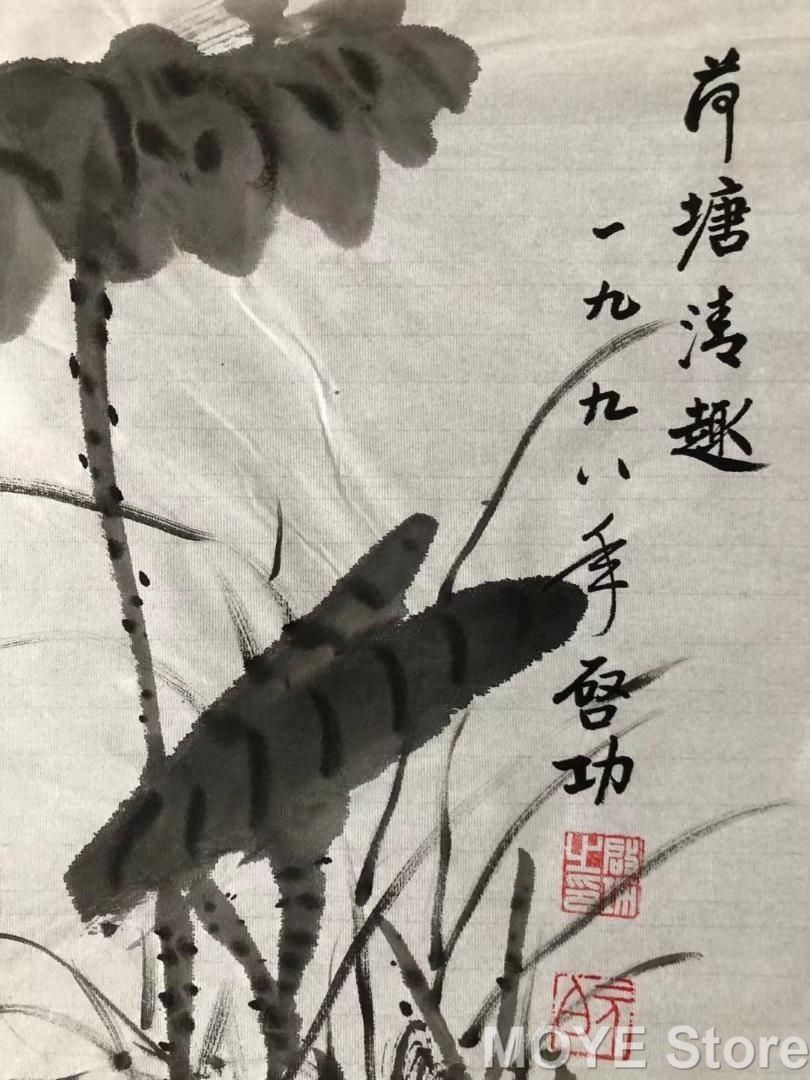 荷塘清趣
一九九八年
啓功
啟功之印
元白
MOYE Store